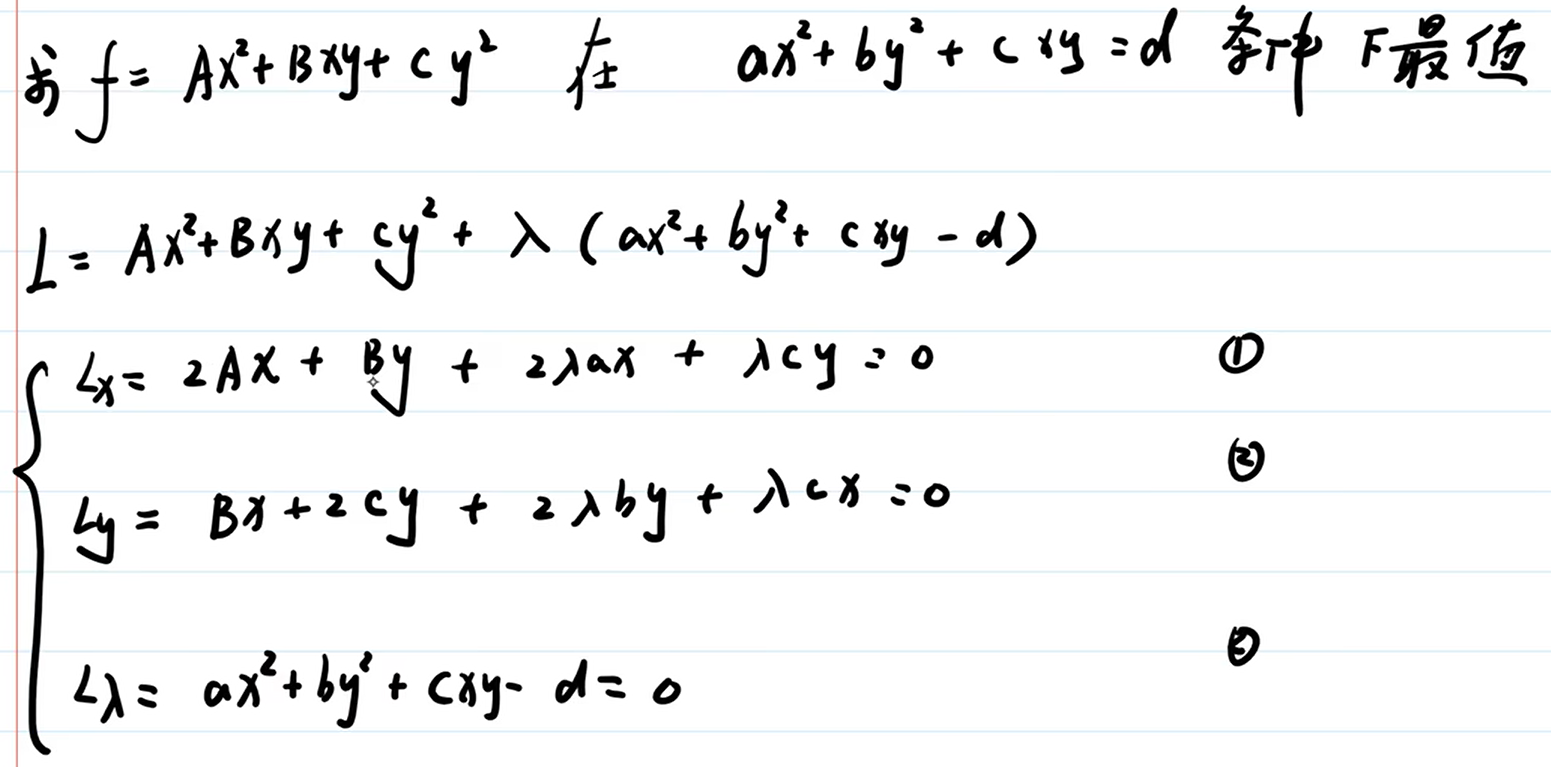 求 f = Ax² + Bxy + Cy² 在 ax² + by² + cxy = d 条件下最值
L = Ax² + Bxy + Cy² + λ(ax² + by² + cxy - d)
Lx = 2Ax + By + 2λax + λcy = 0 ①
Ly = Bx + 2Cy + 2λby + λcx = 0 ②
Lλ = ax² + by² + cxy - d = 0 ③